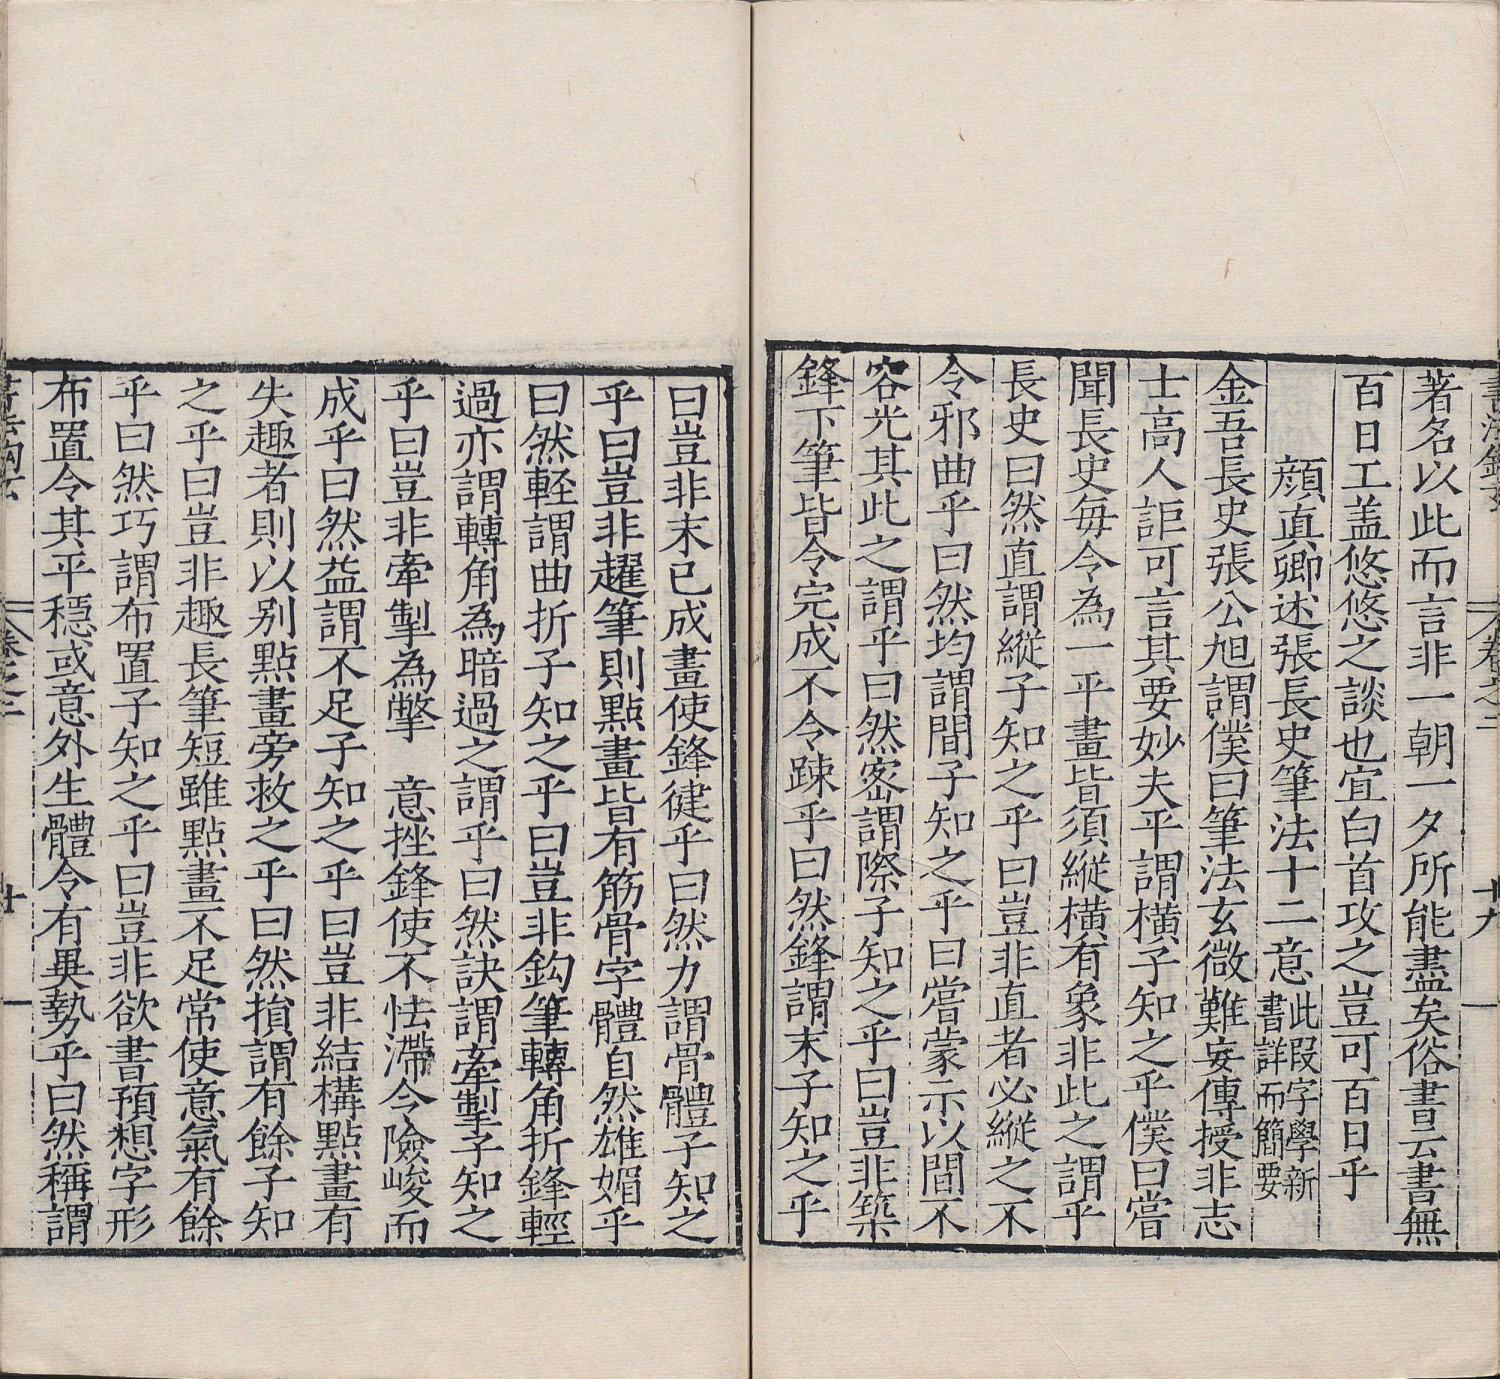 著名以此而言非一朝一夕所能盡矣俗書云書無
百日工盖悠悠之談也宜白首攻之豈可百日乎
顔真卿述張長史筆法十二意此叚字學新書詳而簡要
金吾長史張公旭謂僕曰筆法玄微難妄傳授非志
士高人詎可言其要妙夫平謂橫子知之乎僕曰嘗
聞長史每令為一平畫皆須縦橫有象非此之謂乎
長史曰然直謂縦子知之乎曰豈非直者必縦之不
令邪曲乎曰然均謂間子知之乎曰嘗蒙示以間不
容光其此之謂乎曰然宻謂際子知之乎曰豈非築
鋒下筆皆令完成不令踈乎曰然鋒謂末子知之乎
曰豈非末已成畫使鋒健乎曰然力謂骨體子知之
乎曰豈非趯筆則點畫皆有筋骨字體自然雄媚乎
曰然軽謂曲折子知之乎曰豈非鈎筆轉角折鋒輕
過亦謂轉角為暗過之謂乎曰然訣謂牽掣子知之
乎曰豈非牽掣為撆 意挫鋒使不怯滯令險峻而
成乎曰然益謂不足子知之乎曰豈非結構點畫有
失趣者則以别點畫旁救之乎曰然損謂有餘子知
之乎曰豈非趣長筆短雖點畫不足常使意氣有餘
乎曰然巧謂布置子知之乎曰豈非欲書預想字形
布置令其平穩或意外生體令有異勢乎曰然稱謂